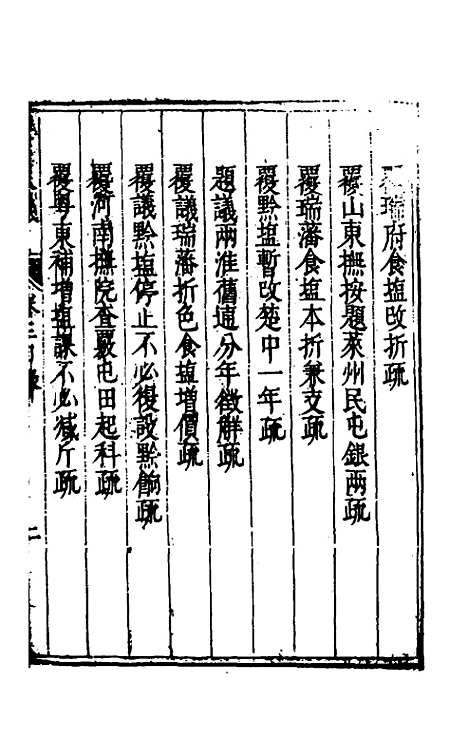 覆瑞府食塩改折疏
覆山東撫按題萊州民屯銀兩疏
覆瑞藩食塩本折兼支疏
覆黔塩暫改楚中一年疏
題議兩淮舊逋分年徵解疏
覆議瑞藩折色食塩増價疏
覆議黔塩停止不必復設黔餉疏
覆河南撫院查覈屯田起科疏
覆粤東補増塩課不必減斤疏
卷三目錄
二